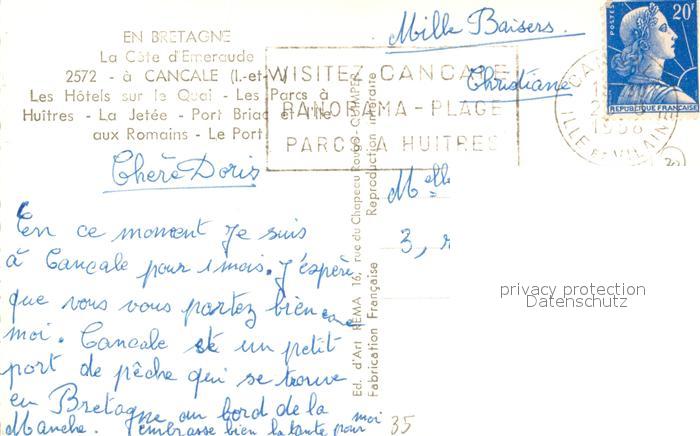 EN BRETAGNE
La Côte d'Emeraude
2572 - à CANCALE (I.-et-V.)
Les Hôtels sur le Quai - Les Parcs à
Huîtres - La Jetée - Port Briac et l'Ile
aux Romains - Le Port
VISITEZ CANCALE
PANORAMA - PLAGE
PARCS A HUITRES
Mille Baisers.
Christiane
POSTES
20F
REPUBLIQUE FRANÇAISE
1958
ILLE ET VILAINE
Chère Doris
En ce moment Je suis
à Cancale pour 1 mois. J'espère
que vous vous portez bien
moi. Cancale est un petit
port de pêche qui se trouve
en Bretagne au bord de la
Manche. J'embrasse bien la tante pour moi
Ed. d'Art REMA 16, rue du Chapeau Rouge - QUIMPER
Fabrication Française
Reproduction interdite
Melle
3, r
privacy protection
Datenschutz
35